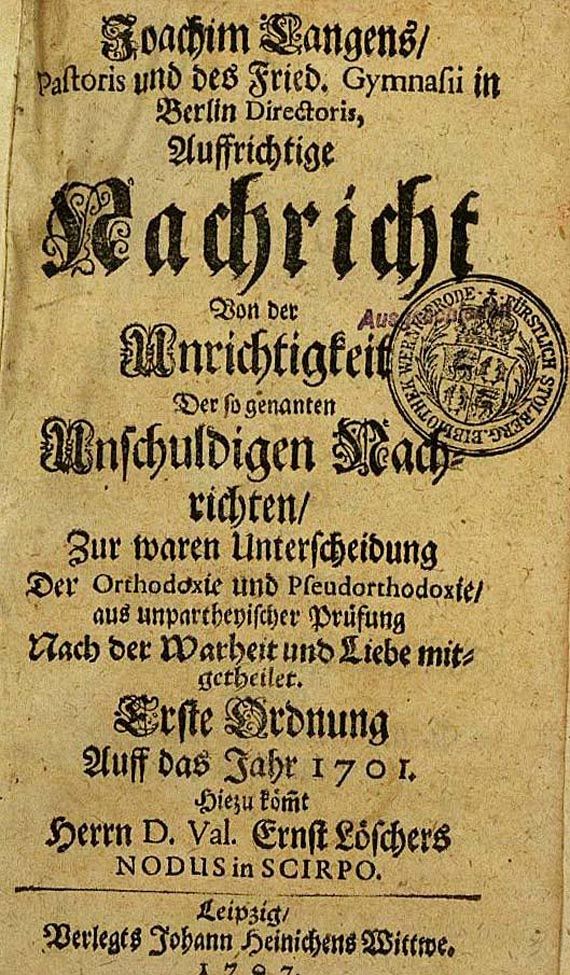 Joachim Langens/
Pastoris und des Fried. Gymnasii in
Berlin Directoris,
Auffrichtige
Nachricht
Von der
Unrichtigkeit
Der so genanten
Unschuldigen Nach-
richten/
Zur waren Unterscheidung
Der Orthodoxie und Pseudorthodoxie/
aus unpartheyischer Prüfung
Nach der Warheit und Liebe mit-
getheilet.
Erste Ordnung
Auff das Jahr 1701.
Hiezu köm̃t
Herrn D. Val. Ernst Löschers
NODUS in SCIRPO.
Leipzig/
Verlegts Johann Heinichens Wittwe.
FÜRSTLICH STOLBERG. BIBLIOTHEK WERNIGERODE